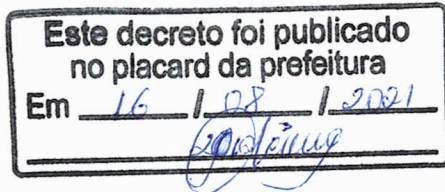 Este decreto foi publicado
no placard da prefeitura
Em 16 / 08 / 2021